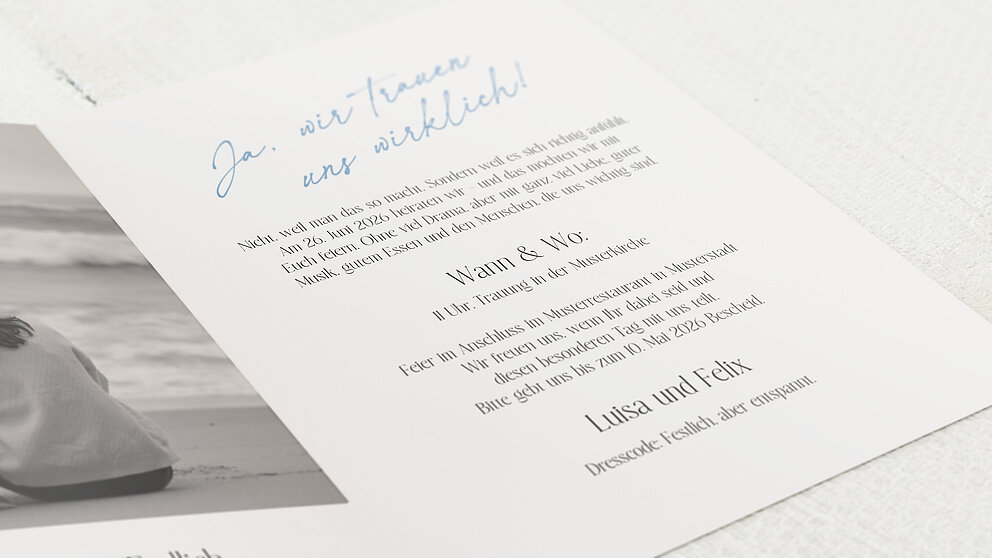 Ja, wir trauen
uns wirklich!
Nicht, weil man das so macht. Sondern weil es sich richtig anfühlt.
Am 26. Juni 2026 heiraten wir - und das möchten wir mit
Euch feiern. Ohne viel Drama, aber mit ganz viel Liebe, guter
Musik, gutem Essen und den Menschen, die uns wichtig sind.
Wann & Wo:
11 Uhr, Trauung in der Musterkirche
Feier im Anschluss im Musterrestaurant in Musterstadt
Wir freuen uns, wenn Ihr dabei seid und
diesen besonderen Tag mit uns teilt.
Bitte gebt uns bis zum 10. Mai 2026 Bescheid.
Luisa und Felix
Dresscode: Festlich, aber entspannt.